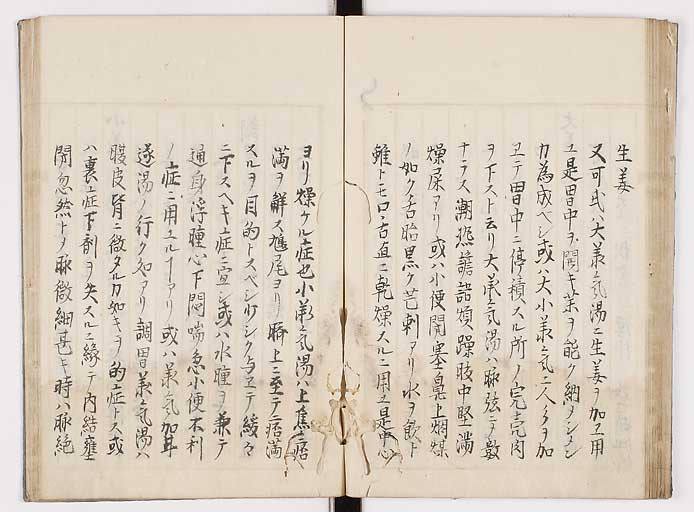 生姜
又可或ハ大羕气湯ニ生姜ヲ加エ用
ユ是胃中ヲ開キ薬ヲ能ク納メシメン
カ為成ベシ或ハ大小羕气ニ人多ヲ加
エテ胃中ニ停積スル所ノ完
ヲ下スト云リ大羕气湯ハ脉弦ニ〆数
ナラス潮熱譫語煩躁肢中堅満
燥屎アリ或ハ小便閉塞鼻上烟煤
ノ如ク舌胎黒ク芒刺アリ水ヲ飲ト
雖トモ口舌直ニ乾燥スルニ用ユ是中心
ヨリ燥ケル症也小羕气湯ハ上焦ニ痞
満ヲ解ス鳩尾ヨリ臍上ニ至テ痞満
スルヲ目的トスベシ少シク与エテ緩々
ニ下スヘキ症ニ宣シ或ハ水腫ヲ兼テ
通身浮腫心下悶喘急小便不利
ノ症ニ用ユルヿアリ或ハ羕气加
逐湯ノ行ク処アリ調胃羕气湯ハ
腹皮背ニ微タルカ如キヲ的症トス或
ハ裏症下剤ヲ失スルニ縁テ内結壅
閉忽然ト〆脉微細甚キ時ハ脉絶